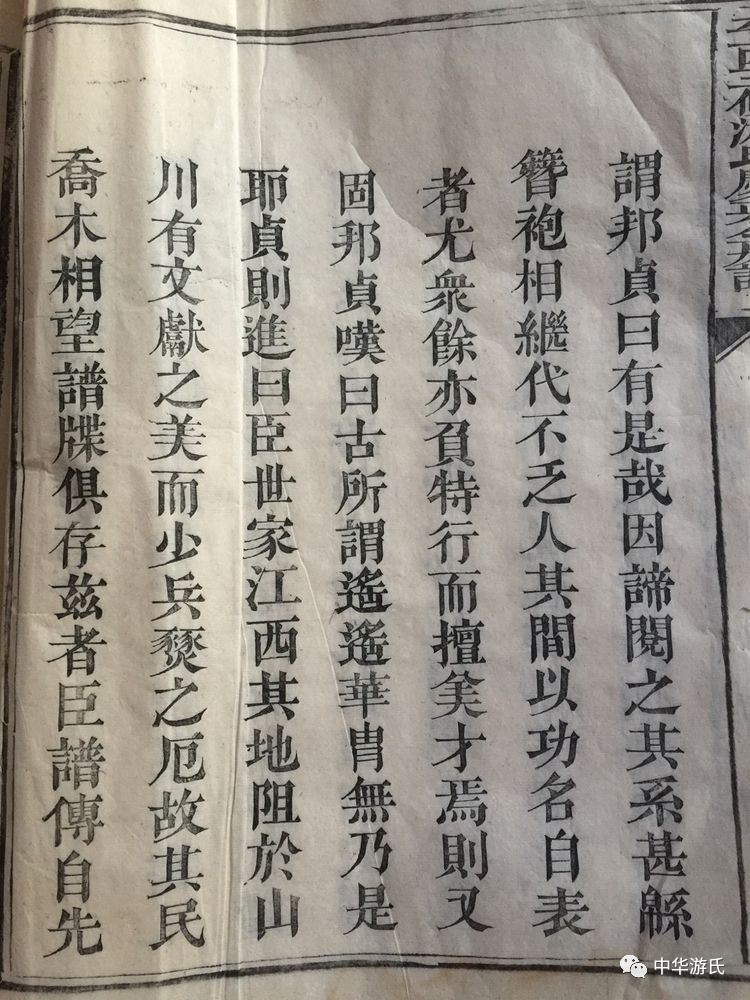 謂邦貞曰有是哉因諦閱之其系甚緜
簪袍相繼代不乏人其間以功名自表
者尤衆餘亦負特行而擅美才焉則又
固邦貞嘆曰古所謂遙遙華胄無乃是
耶貞則進曰臣世家江西其地阻於山
川有文獻之美而少兵燹之厄故其民
喬木相望譜牒俱存兹者臣譜傳自先
中华游氏